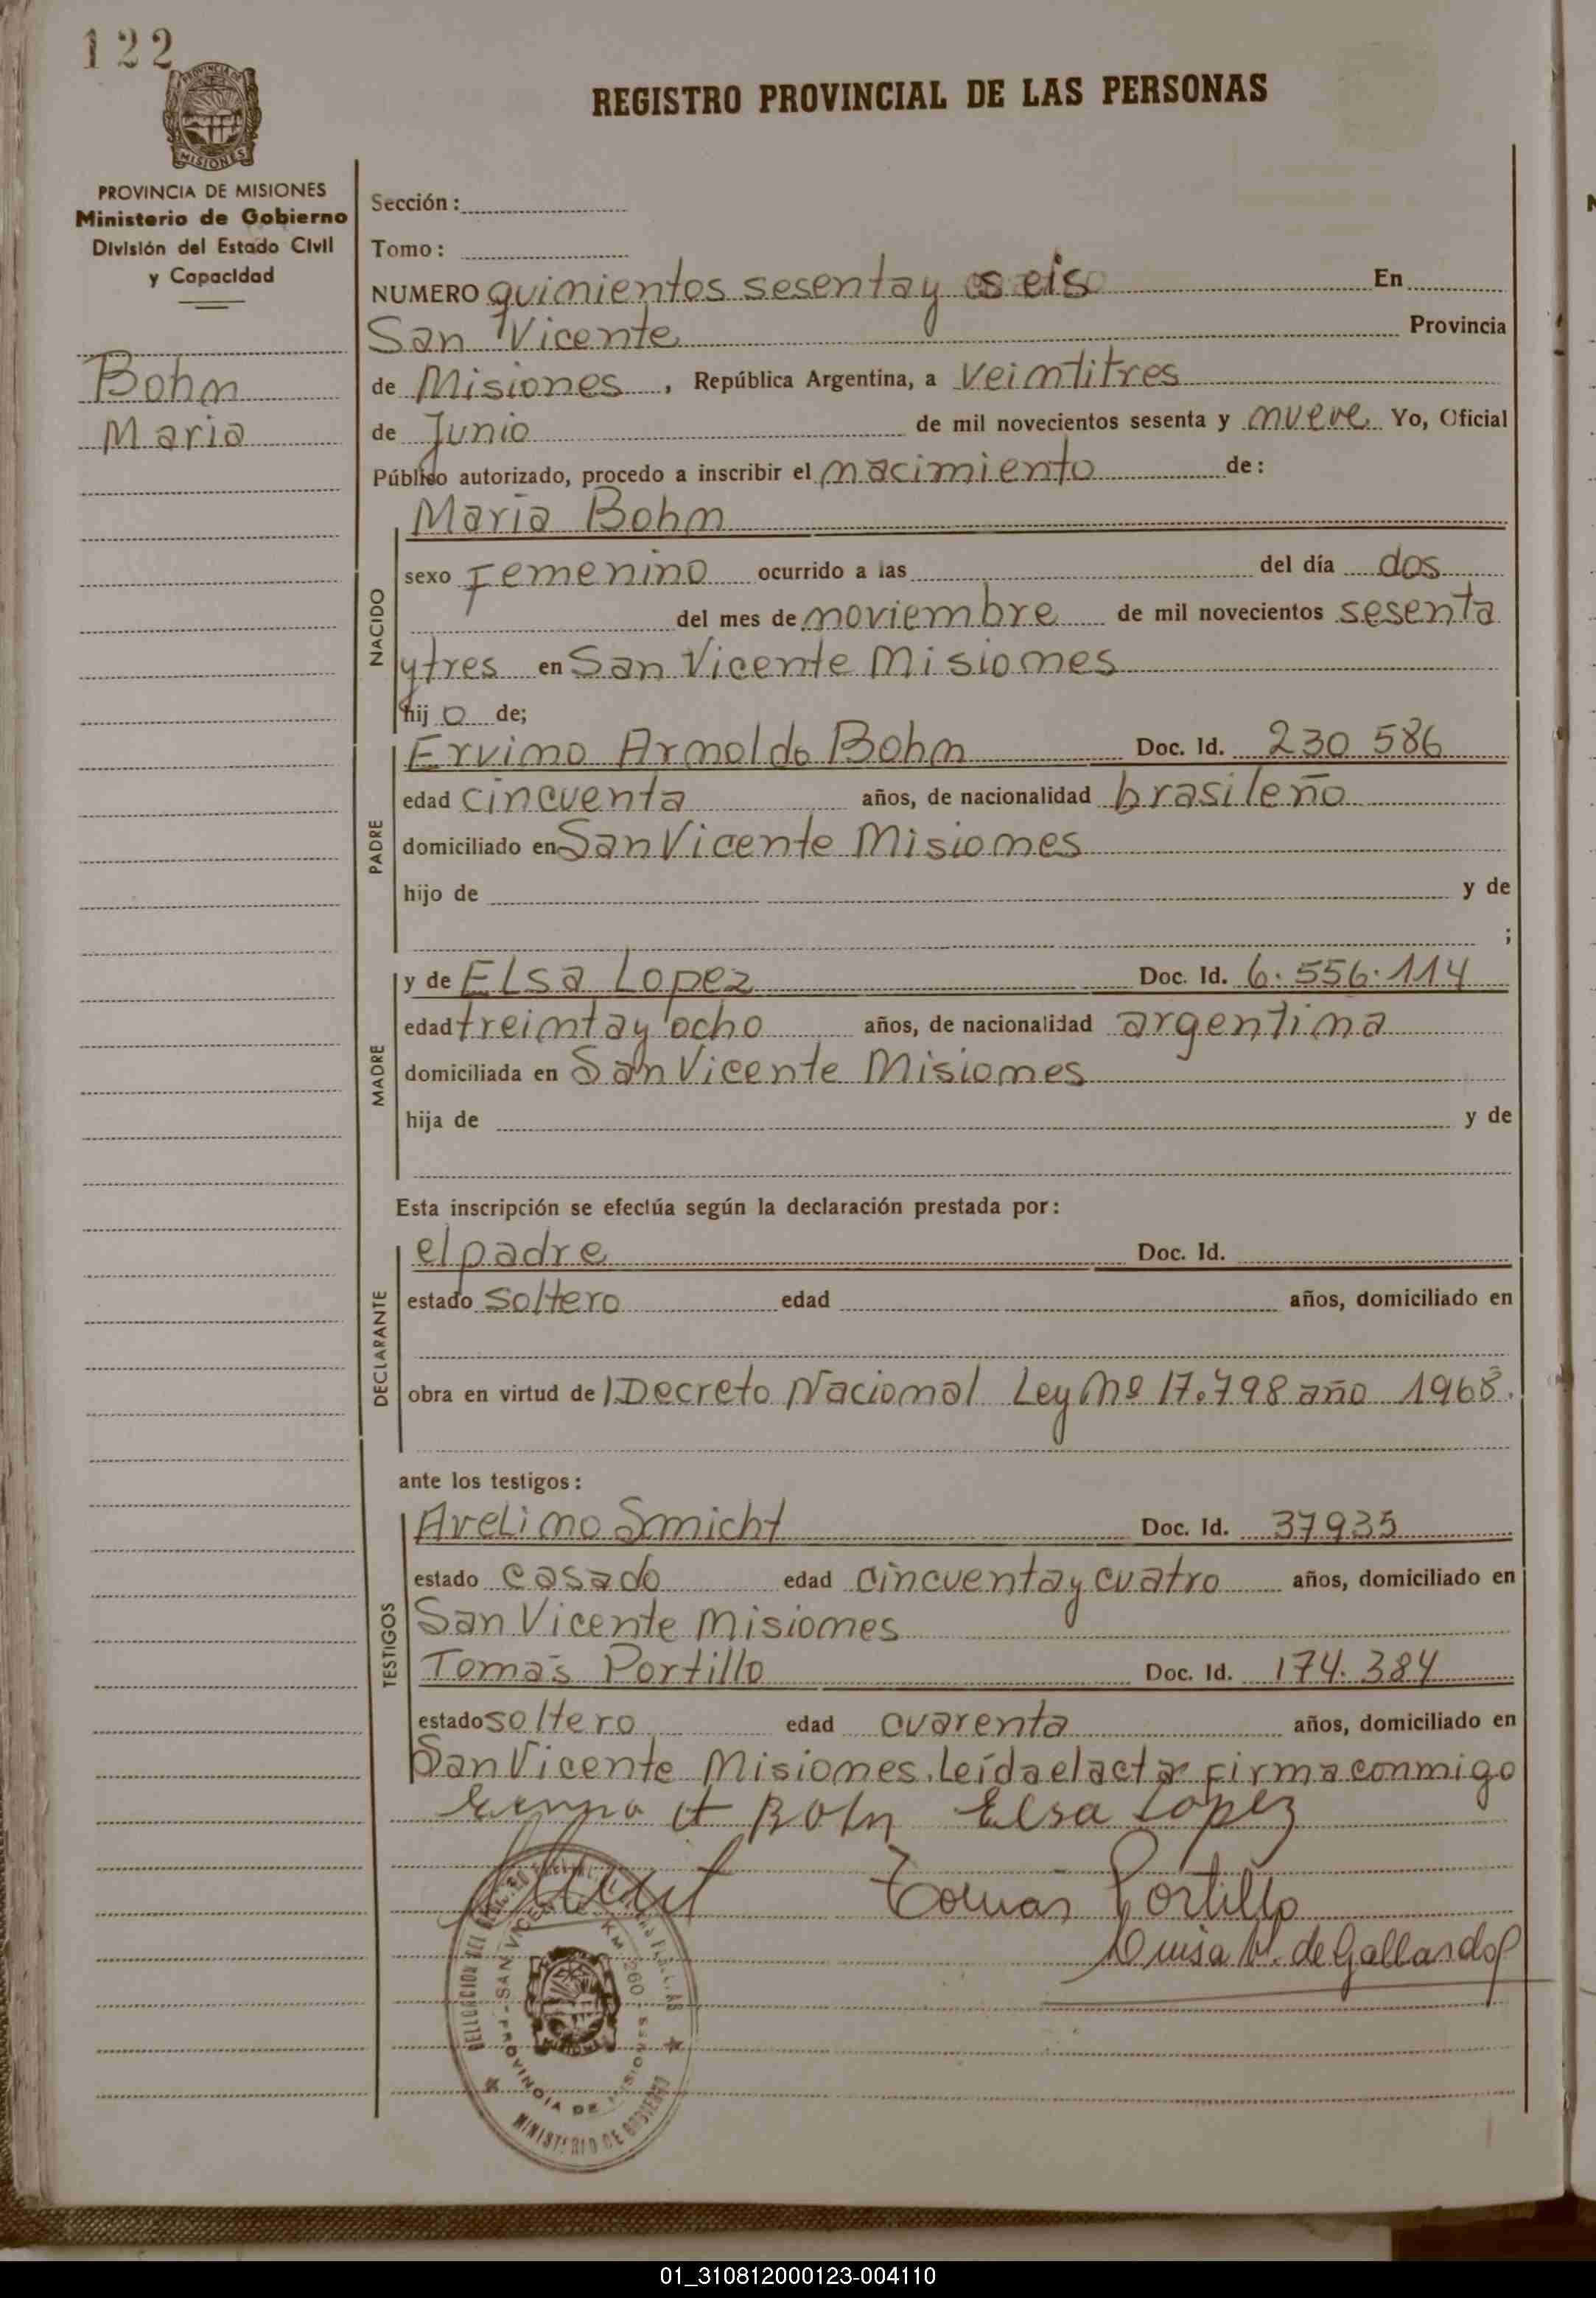 122
PROVINCIA DE
MISIONES
REGISTRO PROVINCIAL DE LAS PERSONAS
PROVINCIA DE MISIONES
Ministerio de Gobierno
División del Estado Civil
y Capacidad
Bohn
Maria
Sección:
Tomo:
NUMERO quinientos sesenta y seis En
San Vicente Provincia
de Misiones, República Argentina, a veintitres
de Junio de mil novecientos sesenta y nueve Yo, Oficial
Público autorizado, procedo a inscribir el nacimiento de:
NACIDO
Maria Bohn
sexo Femenino ocurrido a las del día dos
del mes de noviembre de mil novecientos sesenta
y tres en San Vicente Misiones
hij o de;
PADRE
Ervino Arnoldo Bohn Doc. Id. 230 586
edad cincuenta años, de nacionalidad brasileño
domiciliado en San Vicente Misiones
hijo de y de
;
MADRE
y de Elsa Lopez Doc. Id. 6.556.114
edad treinta y ocho años, de nacionalidad argentina
domiciliada en San Vicente Misiones
hija de y de
Esta inscripción se efectúa según la declaración prestada por:
DECLARANTE
el padre Doc. Id.
estado soltero edad años, domiciliado en
obra en virtud de l Decreto Nacional Ley Nº 17.798 año 1968.
ante los testigos:
TESTIGOS
Avelino Smicht Doc. Id. 37935
estado casado edad cincuenta y cuatro años, domiciliado en
San Vicente Misiones
Tomás Portillo Doc. Id. 174.384
estado soltero edad cuarenta años, domiciliado en
San Vicente Misiones. Leída el acta firma conmigo
A Bohn Elsa Lopez
Tomás Portillo
Luisa de Gallardo
SAN VICENTE KM 260
PROVINCIA DE MISIONES
MINISTERIO DE GOBIERNO
01_310812000123-004110